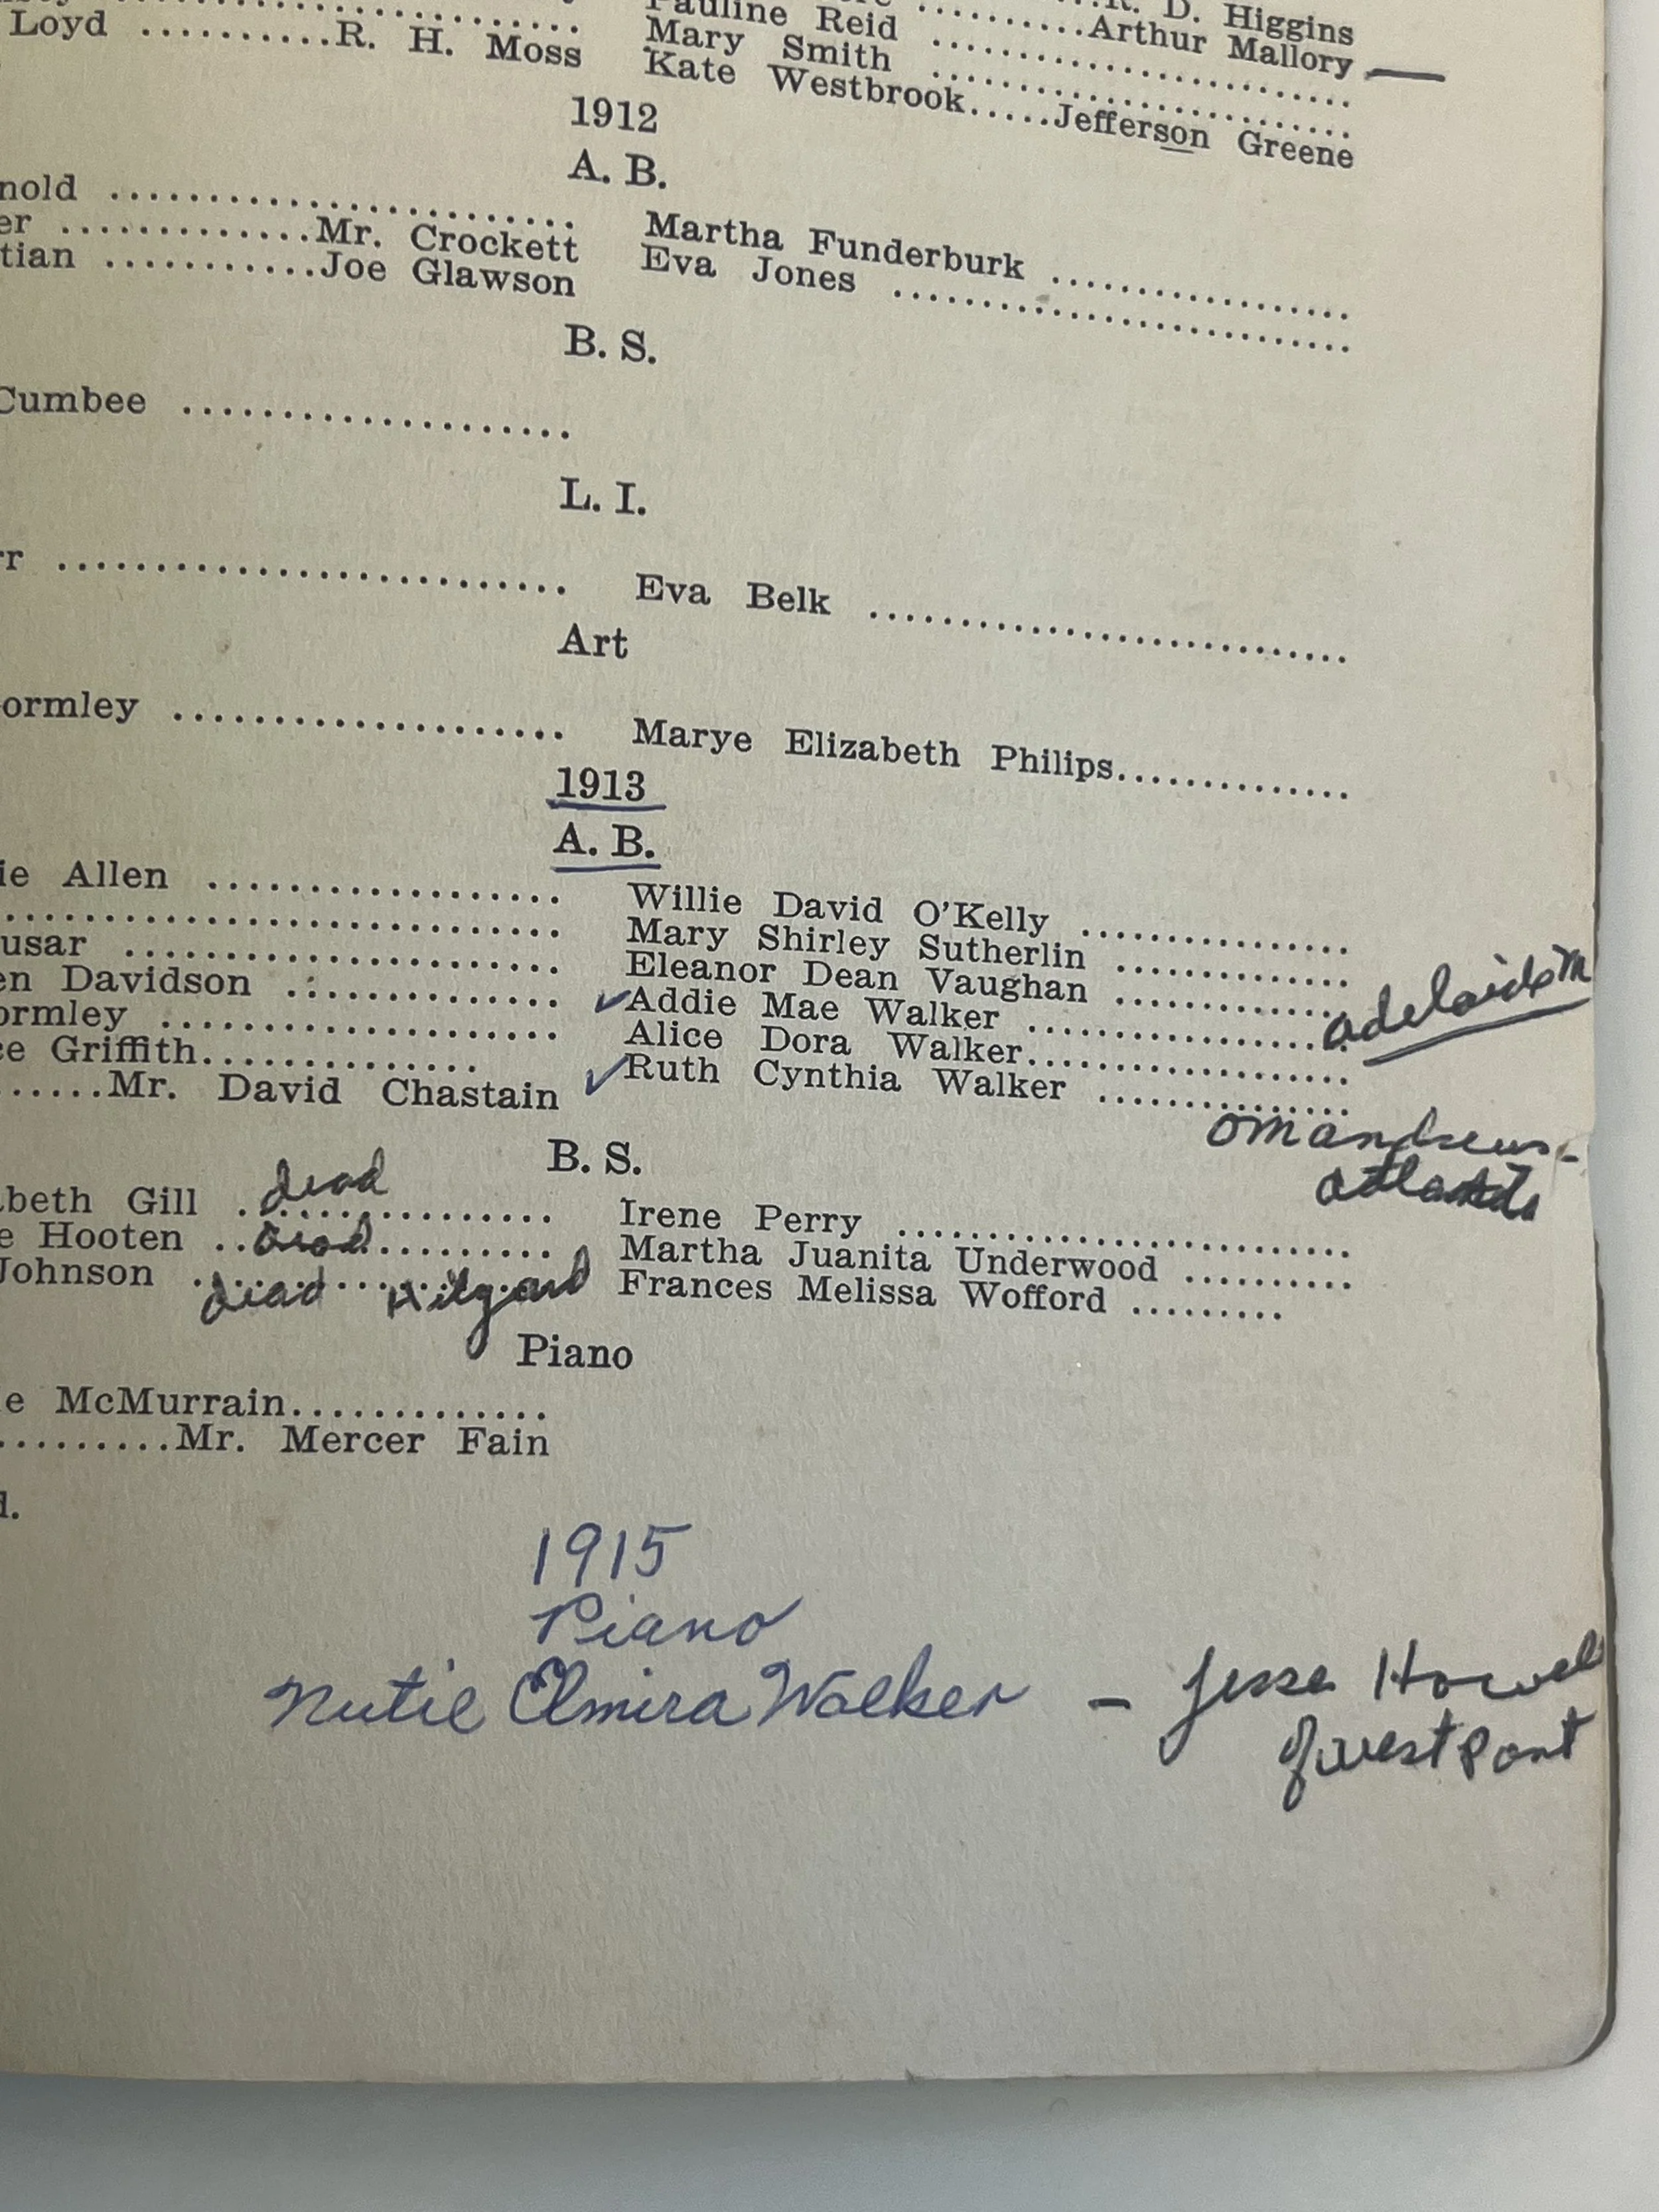 R. D. Higgins
Loyd ..........R. H. Moss
Pauline Reid ..........Arthur Mallory
Mary Smith ..........
Kate Westbrook.....Jefferson Greene
1912
A. B.
nold ..........
er .............Mr. Crockett
tian ...........Joe Glawson
Martha Funderburk ..........
Eva Jones ..........
B. S.
Cumbee ..........
L. I.
rr ..........
Eva Belk ..........
Art
ormley ..........
Marye Elizabeth Philips..........
1913
A. B.
ie Allen ..........
..........
usar ..........
en Davidson ..........
ormley ..........
ce Griffith..........
......Mr. David Chastain
Willie David O'Kelly ..........
Mary Shirley Sutherlin ..........
Eleanor Dean Vaughan ..........
✓Addie Mae Walker .......... adelaide m
Alice Dora Walker..........
✓Ruth Cynthia Walker ..........
om andrews -
atlanta
B. S.
beth Gill .......... dead
e Hooten .......... dead
Johnson .......... dead Hilyard
Irene Perry ..........
Martha Juanita Underwood ..........
Frances Melissa Wofford .........
Piano
e McMurrain.............
.........Mr. Mercer Fain
d.
1915
Piano
Elmira Walker – Jesse Howel
of west Pont